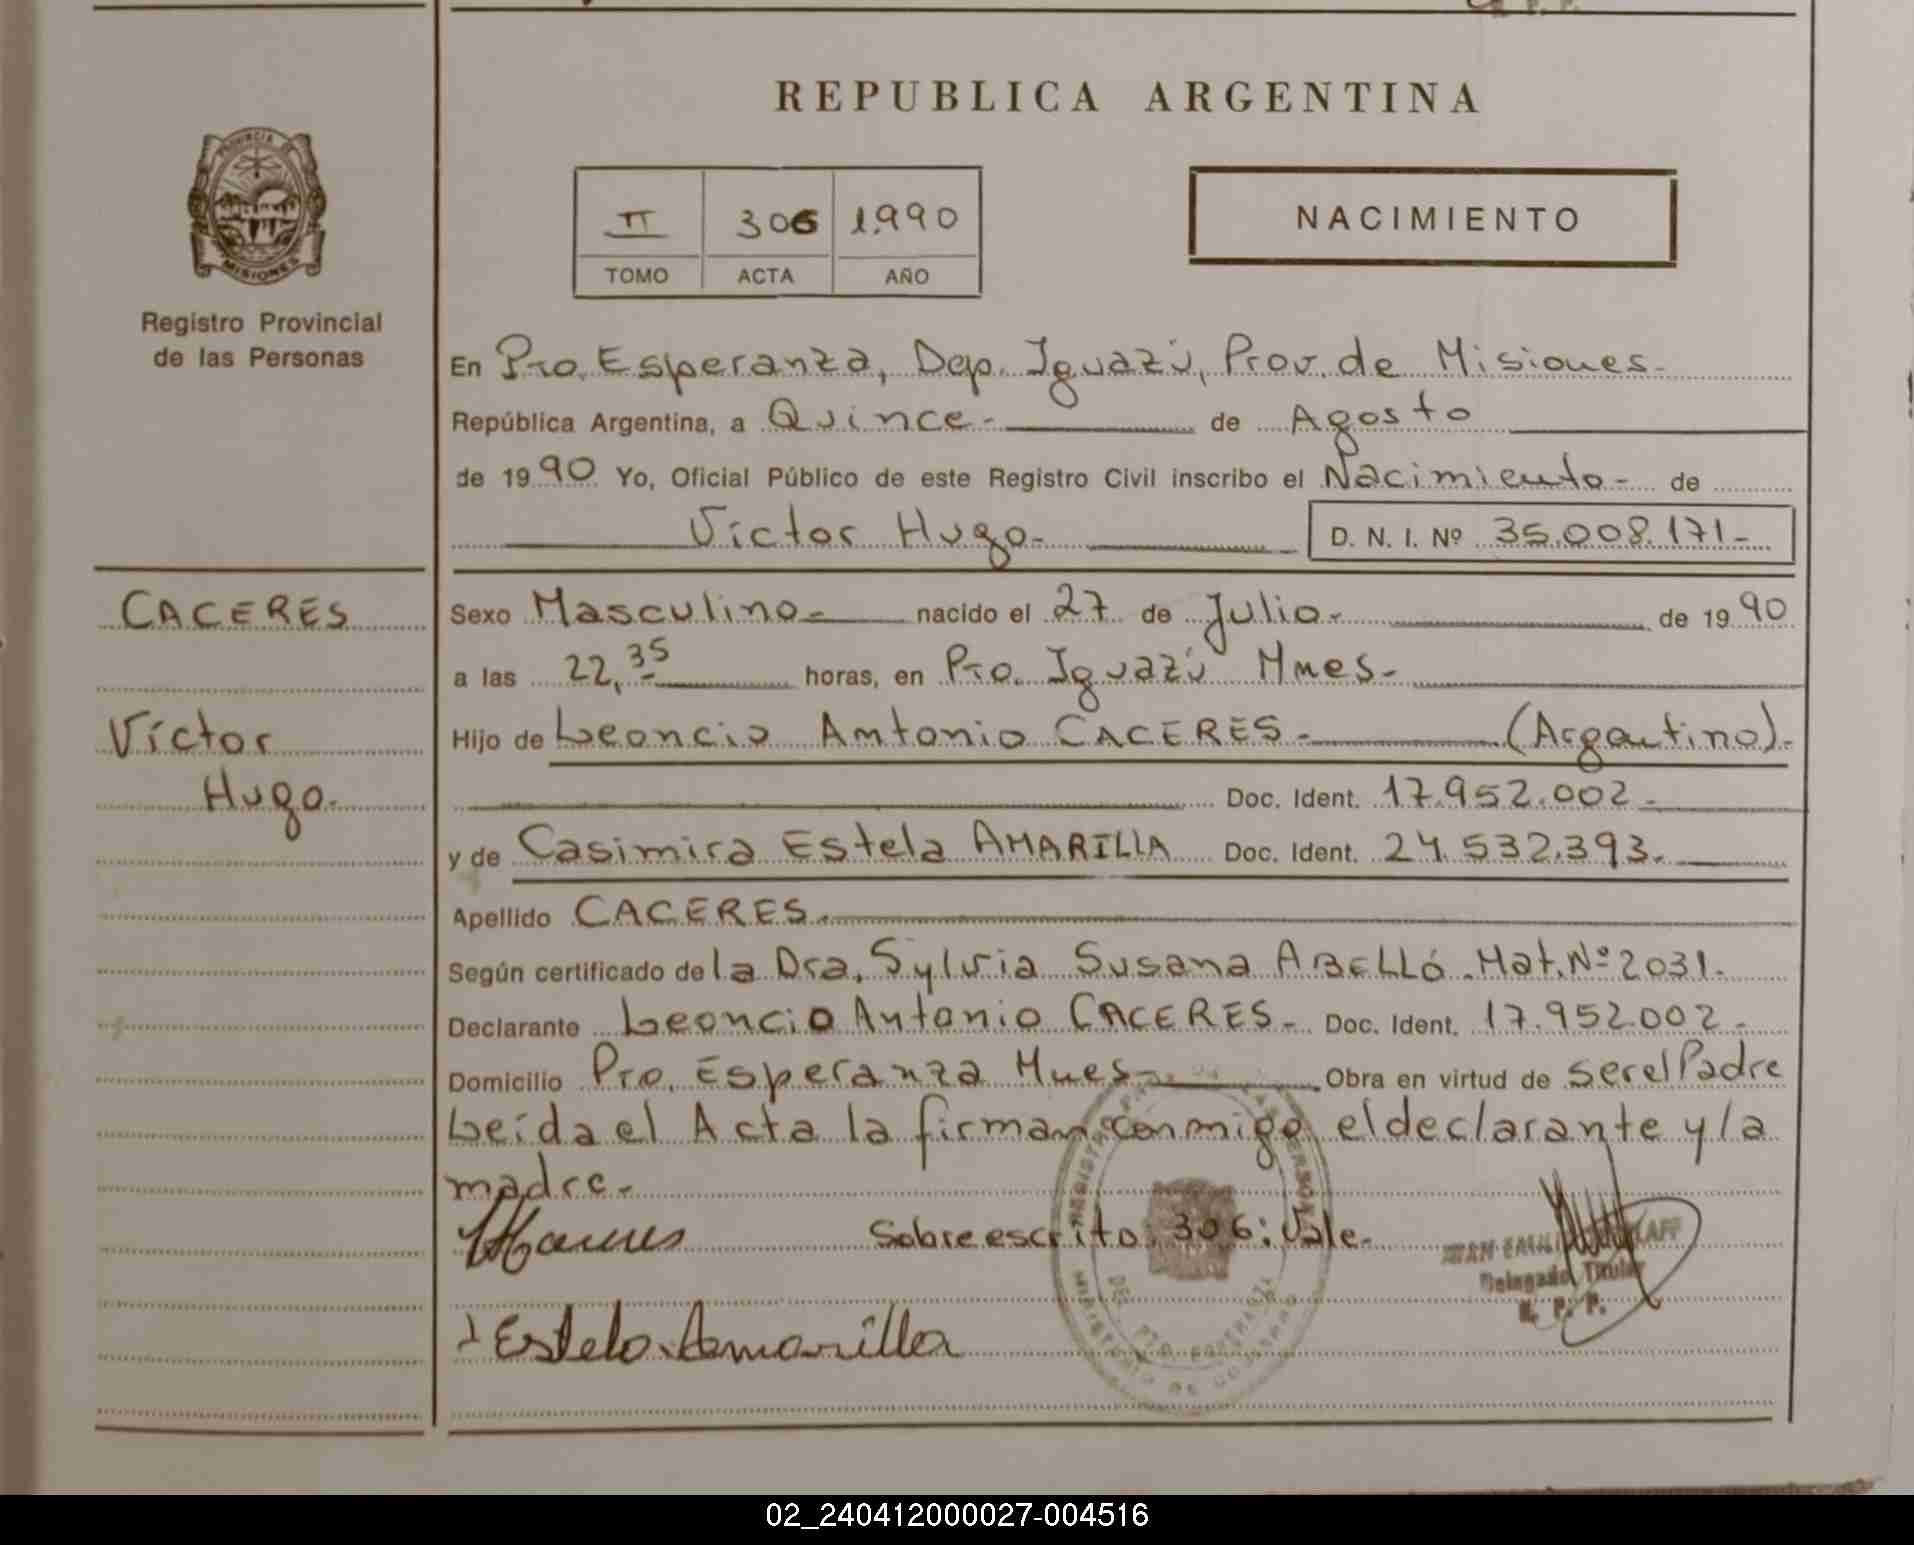 REPUBLICA ARGENTINA
PROVINCIA DE
MISIONES
Registro Provincial
de las Personas
II 306 1.990
TOMO ACTA AÑO
NACIMIENTO
En Pto. Esperanza, Dep. Iguazú, Prov. de Misiones.
República Argentina, a Quince- de Agosto
de 1990 Yo, Oficial Público de este Registro Civil inscribo el Nacimiento- de
Víctor Hugo- D. N. I. Nº 35.008.171-
CACERES
Víctor
Hugo.
Sexo Masculino- nacido el 27 de Julio- de 1990
a las 22,35 horas, en Pto. Iguazú Mnes-
Hijo de Leoncio Antonio CACERES- (Argentino)-
Doc. Ident. 17.952.002-
y de Casimira Estela AMARILLA Doc. Ident. 24.532.393.
Apellido CACERES.
Según certificado de la Dra. Sylvia Susana ABELLÓ Mat. Nº 2031.
Declarante Leoncio Antonio CACERES- Doc. Ident. 17.952.002-
Domicilio Pto. Esperanza Mnes- Obra en virtud de ser el Padre
Leída el Acta la firman conmigo el declarante y la
madre-
Sobreescrito: 306: Vale.
Delegado Titular
R. P. P.
Estela Amarilla
02_240412000027-004516